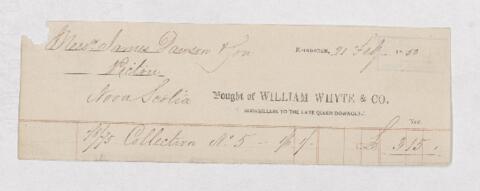 Messrs James Dawson & Son
Edinburgh, 21 Feby 1850
Pictou
Nova Scotia
Bought of WILLIAM WHYTE & CO.
BOOKSELLERS TO THE LATE QUEEN DOWAGER.
Collection No. 5 £ 3 15